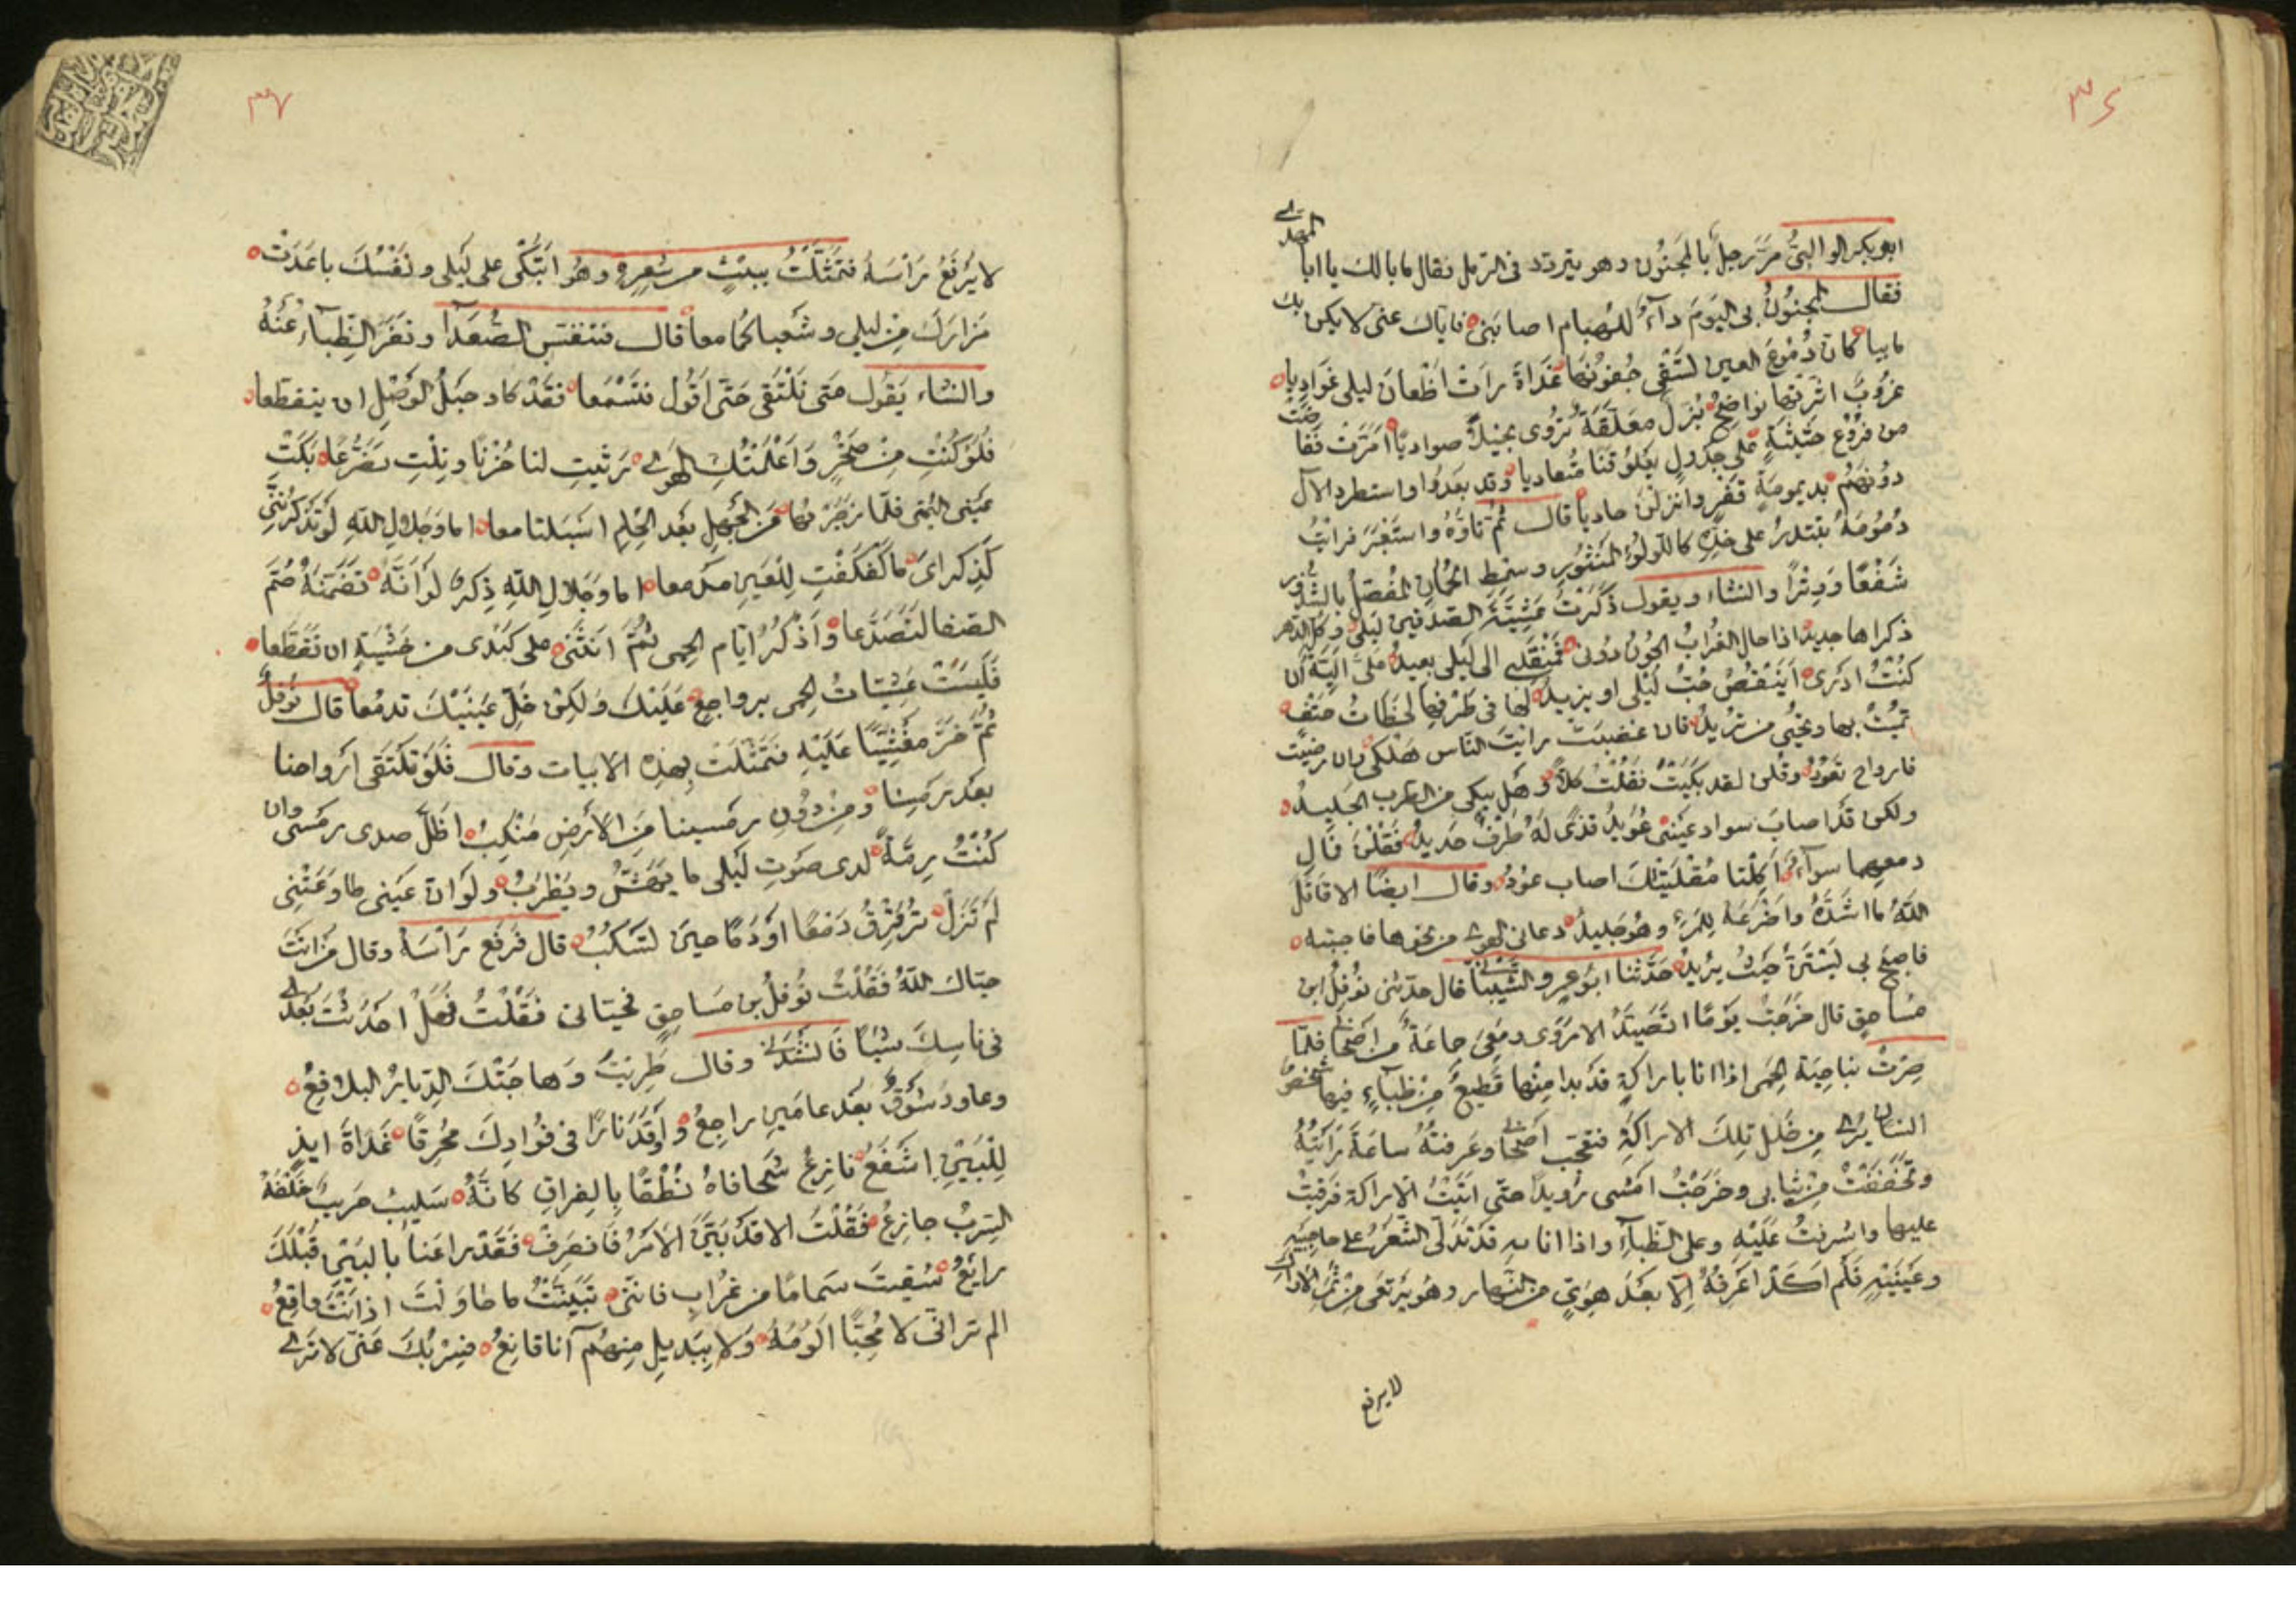 ٣٤
ابو بكر الوالبىُّ مرَّ رجلٌ بالمَجنُون وهو يتردد فى الرمل فقال ما بالك يا ابا المهدى
فقال المجنُونُ بى اليَومَ دآءٌ للهيام اصابَنى فاياك عنى لا يكن بك
مابيا كان دُمُوعَ العين تسقى جُفُونُها غَدَاةَ رات اظعان ليلى غَوَاديا
غرُوبٌ اثرتها نواضحُ بُزَّلٌ معَلقَةٌ تُرْوى نخيلاً صواديا امَرَّت ففاضت
من فرُوع حثيثةٍ على جَدْولٍ يَعْلوُ قنًا مُتعاديا وقد بعَدُوا واستطرد الآل
دُونهُم بديمومةٍ قفْرٍ وانزلن حاديا قال ثم تاوَّه واستعْبَر فرايْتُ
دُمُوعَهُ تبتدرُ على خدِّهِ كاللولؤ المنثُورِ وسمط الجُمان المُفصّلِ بالشذر
شَفْعًا وَوِتْرًا وانشاء ويقول ذَكَرْتُ عَشِيّةَ الصدفين ليلى وكل الدهر
ذكراها جديد اذا حال الغُرابُ الجُونُ دُونى فمنقلبى الى ليلى بعيد على اليّةٌ ان
كنتُ ادْرى أيَنْقُصُ حُبُّ ليْلى او يزيد لها فى طَرْفِها لحَظاتُ حتفٍ
تميتُ بها وتُحْيى من تريد فان غضبَتْ رايتَ الناس هَلْكى وان رضيت
فارواح تعُودُ وقلن لقد بكيْتَ فقُلْتُ كلاَّ وهَل يبكى من الطرب الجليدُ
ولكن قَدْ اصابَ سواد عَيْنى عُوَيدُ قذًى لهُ طَرْفٌ حديدُ فقلْنَ فما لِ
دمعِهما سوآءٌ اكِلْتا مُقلَتَيْكَ اصاب عودُ وقال ايضًا الا قاتل
اللهُ ما اشدَّهُ واضْرَعَهُ للمرءِ وهُو جليدُ دعانى الهوى من نحوها فاجبته
فاصبَح بى يستنُّ حيثُ يُريدُ حدَّثنا ابُو عمرو الشيبانى قال حدّثنى نُوفلُ ابن
مُساحقٍ قال خَرَجْتُ يومًا اتصيَّدُ الاروى ومَعى جماعةٌ من اصحابى فلمّا
صِرْتُ بناحِيَة الحِمَى اذا انا باراكةٍ قد بدا مِنْها قَطِيعٌ مِنْ ظِبآءٍ فيها شخصُ
انسان يُرى من خَلل تِلكَ الاراكةِ فتعجّب اصحابى وعَرفتهُ ساعَةَ رَايتُهُ
وتَخَفَّفتُ مِنْ ثيابى وخَرَجْتُ امشى رويدًا حتّى اتَيْتُ الاراكة فرقيتُ
عليها واشرفتُ عَلَيْهِ وعلى الظباءِ واذا انا به قد تدَلّى الشّعَرُ على حاجبَيه
وعَيْنَيْهِ فلَم اكَدْ اعرفُهُ الّا بعْدَ هوِىٍّ من النهار وهُو يَرْتعى مِنْ ثمَرِ الاراك
لا يرفع
٣٧
لا يَرْفعُ رَاسَهُ فتمثّلتُ ببيْتٍ من شِعرِه وهُو اتبْكى على ليلى ونَفْسُكَ باعَدَتْ
مَزارَكَ مِنْ ليلى وشَعباكُما معا قال فتنفّس الصُّعَدآ ونَفَرَ الظِّبآءُ عَنْهُ
وانشاء يَقول متى نلْتقى حَتّى اقُول فتَسْمَعا فقَدْ كاد حبَلُ الوَصْلِ ان ينقطعا
فلوْ كُنْتِ مِنْ صَخْرٍ وَاعْلَمْتُكِ الهوى رَثيتِ لنا حُزْنًا ونِلْتِ تضَرُّعا بَكَتْ
عَيْنى اليُمْنى فلمّا زجَرْتُها عَنِ الجَهلِ بعْدَ الحِلمِ اسبَلتا معا اما وجَلالِ اللهِ لَوْ تَذْكُرِيْنَنى
كَذِكراىَ ما كَفْكَفْتِ للعَيْنِ مدمعا اما وجَلالِ اللهِ ذِكرهُ لَوْ انّهُ تضَمّنَهُ صُمُّ
الصفا لتصَدَّعا وَاَذْكُرُ ايّام الحِمى ثُمَّ انثنى على كبَدى من خشْيَةٍ ان تقَطّعا
فَلَيْسَتْ عَشيّاتُ الحِمى برواجعٍ عَلَيْكَ وَلكِنْ خَلِّ عَيْنَيْكَ تدمُعا قال نُوفلُ
ثُمَّ خَرَّ مغْشِيًّا عَلَيْهِ فتَمثّلتُ بهذِهِ الابيات وقال فلَوْ تلتقى ارواحنا
بعْدَ رَمْسِنا ومِنْ دُونِ رمْسينا مِنَ الارْضِ مَنْكِبُ اظَلَّ صدى رمسى وان
كُنْتُ رِمّةً لدى صَوتِ ليْلى ما يهَشُّ ويَطْرَبُ ولوْ انّ عَيْنى طاوَعَتْنى
لمْ تَزَلْ تُرَقْرِقُ دَمْعًا اوْ دَمًا حينَ تَسكُبُ قال فرَفَع رَاْسَهُ وقال مَنْ انتَ
حيّاك اللهُ فقُلْتُ نُوفلُ بن مُساحقٍ فحيّانى فقُلْتُ فهلْ احْدَثْتَ بعْدى
فى ناسِكَ شيْاً فانشدَنى وقال طَرِبْتَ وهاجتْكَ الدِّيارُ البلاقِعُ
وعاوَدَ شوْقٌ بعْدَ عامَيْنِ راجعُ وَاُوقِدَ نارًا فى فُوَادِكَ مُحْرِقًا غَدَاةَ ايذٍ
لِلْبَيْنِ اشفَعُ فانزِعُ شَحافاهُ نُطْقًا بالفِراقِ كانّهُ سَليبٌ حَريبٌ خَلْفَهُ
السِّربُ جازعُ فقُلْتُ الا قدْ بيَّنَ الامْرُ فانْصَرِفْ فقَدْ راعَنا بالبَيْنِ قَبْلَكَ
رايِعُ سُقِيتَ سمامًا من غُرابٍ فانّنى تَبَيّنْتُ ما حاوَلتَ اذ انْتَ واقعُ
الم تر انّى لا مُحِبًّا الُومُهُ ولا ببَديلٍ منهُم اَنا قانِعُ فسِرْبُكَ عنّى لا ترى